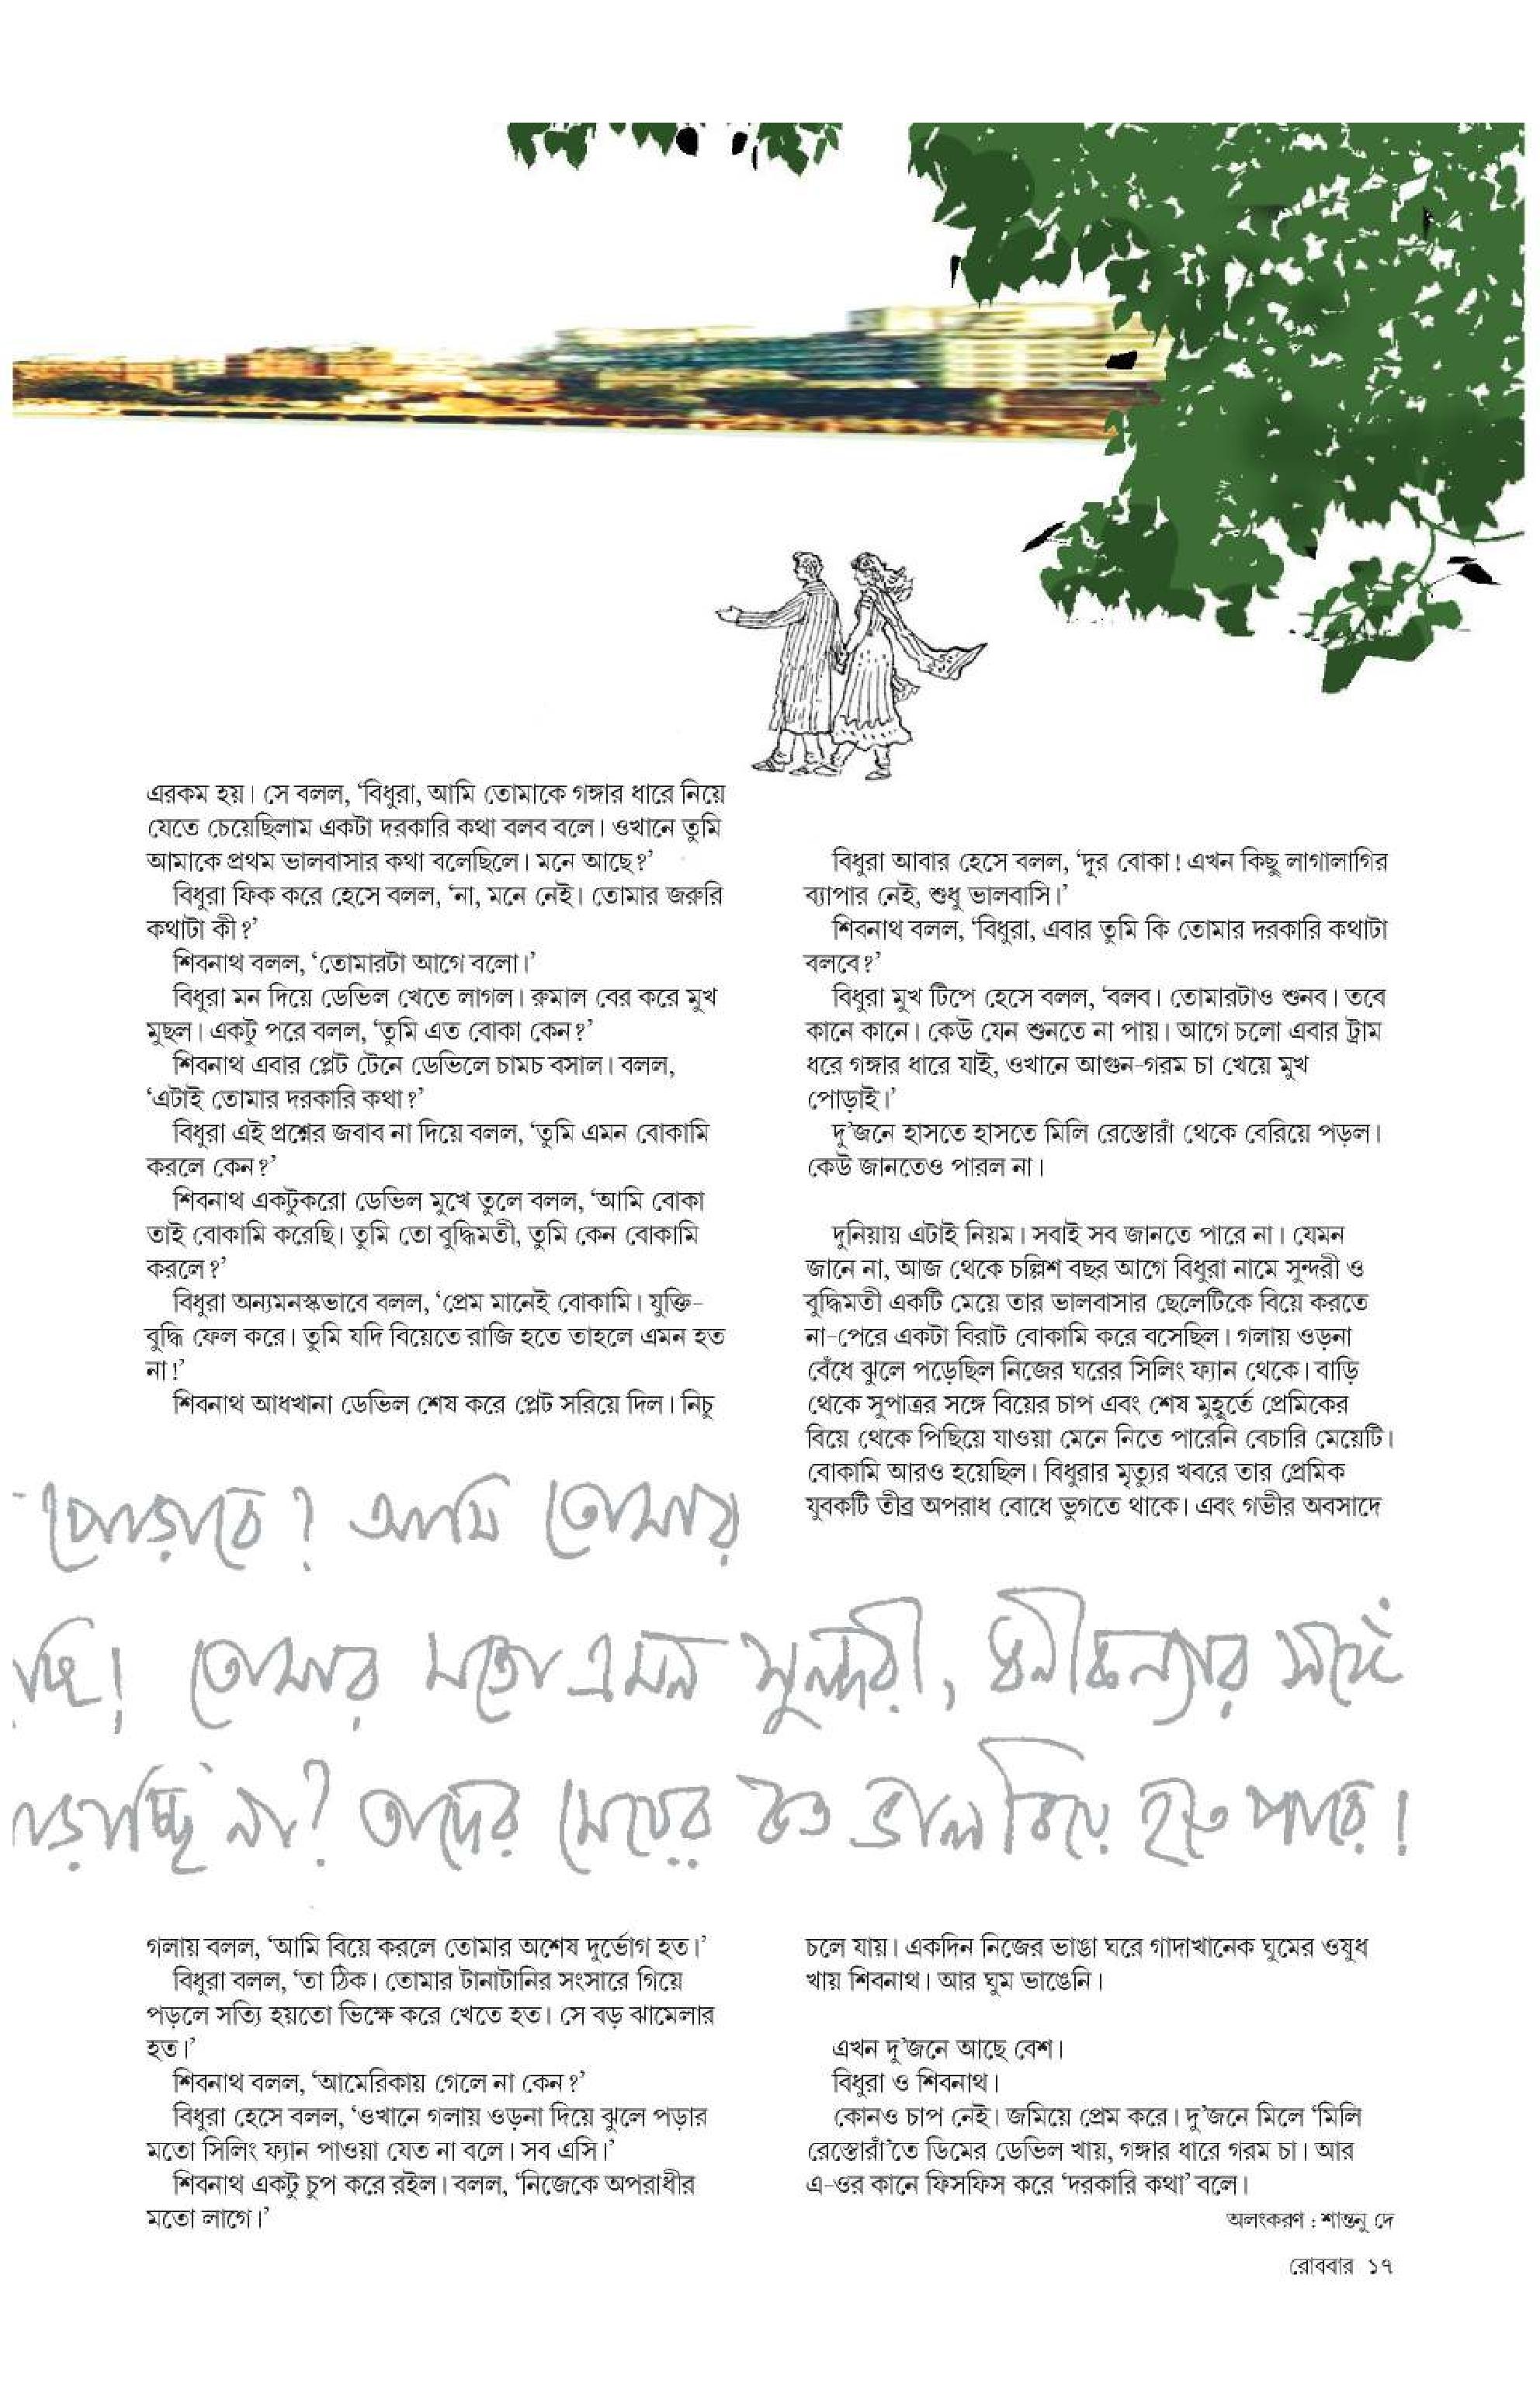 এরকম হয়। সে বলল, ‘বিধুরা, আমি তোমাকে গঙ্গার ধারে নিয়ে
যেতে চেয়েছিলাম একটা দরকারি কথা বলব বলে। ওখানে তুমি
আমাকে প্রথম ভালবাসার কথা বলেছিলে। মনে আছে?’
বিধুরা ফিক করে হেসে বলল, ‘না, মনে নেই। তোমার জরুরি
কথাটা কী?’
শিবনাথ বলল, ‘তোমারটা আগে বলো।’
বিধুরা মন দিয়ে ডেভিল খেতে লাগল। রুমাল বের করে মুখ
মুছল। একটু পরে বলল, ‘তুমি এত বোকা কেন?’
শিবনাথ এবার প্লেট টেনে ডেভিলে চামচ বসাল। বলল,
‘এটাই তোমার দরকারি কথা?’
বিধুরা এই প্রশ্নের জবাব না দিয়ে বলল, ‘তুমি এমন বোকামি
করলে কেন?’
শিবনাথ একটুকরো ডেভিল মুখে তুলে বলল, ‘আমি বোকা
তাই বোকামি করেছি। তুমি তো বুদ্ধিমতী, তুমি কেন বোকামি
করলে?’
বিধুরা অন্যমনস্কভাবে বলল, ‘প্রেম মানেই বোকামি। যুক্তি-
বুদ্ধি ফেল করে। তুমি যদি বিয়েতে রাজি হতে তাহলে এমন হত
না!’
শিবনাথ আধখানা ডেভিল শেষ করে প্লেট সরিয়ে দিল। নিচু
পোড়াবে? আমি তোমার
ছি! তোমার মতো এমন সুন্দরী, ধনীকন্যার সঙ্গে
না? তাদের মেয়ের কত ভাল বিয়ে হতে পারে!
গলায় বলল, ‘আমি বিয়ে করলে তোমার অশেষ দুর্ভোগ হত।’
বিধুরা বলল, ‘তা ঠিক। তোমার টানাটানির সংসারে গিয়ে
পড়লে সত্যি হয়তো ভিক্ষে করে খেতে হত। সে বড় ঝামেলার
হত।’
শিবনাথ বলল, ‘আমেরিকায় গেলে না কেন?’
বিধুরা হেসে বলল, ‘ওখানে গলায় ওড়না দিয়ে ঝুলে পড়ার
মতো সিলিং ফ্যান পাওয়া যেত না বলে। সব এসি।’
শিবনাথ একটু চুপ করে রইল। বলল, ‘নিজেকে অপরাধীর
মতো লাগে।’
বিধুরা আবার হেসে বলল, ‘দূর বোকা! এখন কিছু লাগালাগির
ব্যাপার নেই, শুধু ভালবাসি।’
শিবনাথ বলল, ‘বিধুরা, এবার তুমি কি তোমার দরকারি কথাটা
বলবে?’
বিধুরা মুখ টিপে হেসে বলল, ‘বলব। তোমারটাও শুনব। তবে
কানে কানে। কেউ যেন শুনতে না পায়। আগে চলো এবার ট্রাম
ধরে গঙ্গার ধারে যাই, ওখানে আগুন-গরম চা খেয়ে মুখ
পোড়াই।’
দু’জনে হাসতে হাসতে মিলি রেস্তোরাঁ থেকে বেরিয়ে পড়ল।
কেউ জানতেও পারল না।
দুনিয়ায় এটাই নিয়ম। সবাই সব জানতে পারে না। যেমন
জানে না, আজ থেকে চল্লিশ বছর আগে বিধুরা নামে সুন্দরী ও
বুদ্ধিমতী একটি মেয়ে তার ভালবাসার ছেলেটিকে বিয়ে করতে
না-পেরে একটা বিরাট বোকামি করে বসেছিল। গলায় ওড়না
বেঁধে ঝুলে পড়েছিল নিজের ঘরের সিলিং ফ্যান থেকে। বাড়ি
থেকে সুপাত্রর সঙ্গে বিয়ের চাপ এবং শেষ মুহূর্তে প্রেমিকের
বিয়ে থেকে পিছিয়ে যাওয়া মেনে নিতে পারেনি বেচারি মেয়েটি।
বোকামি আরও হয়েছিল। বিধুরার মৃত্যুর খবরে তার প্রেমিক
যুবকটি তীব্র অপরাধ বোধে ভুগতে থাকে। এবং গভীর অবসাদে
চলে যায়। একদিন নিজের ভাঙা ঘরে গাদাখানেক ঘুমের ওষুধ
খায় শিবনাথ। আর ঘুম ভাঙেনি।
এখন দু’জনে আছে বেশ।
বিধুরা ও শিবনাথ।
কোনও চাপ নেই। জমিয়ে প্রেম করে। দু’জনে মিলে ‘মিলি
রেস্তোরাঁ’তে ডিমের ডেভিল খায়, গঙ্গার ধারে গরম চা। আর
এ-ওর কানে ফিসফিস করে ‘দরকারি কথা’ বলে।
অলংকরণ : শান্তনু দে
রোববার ১৭